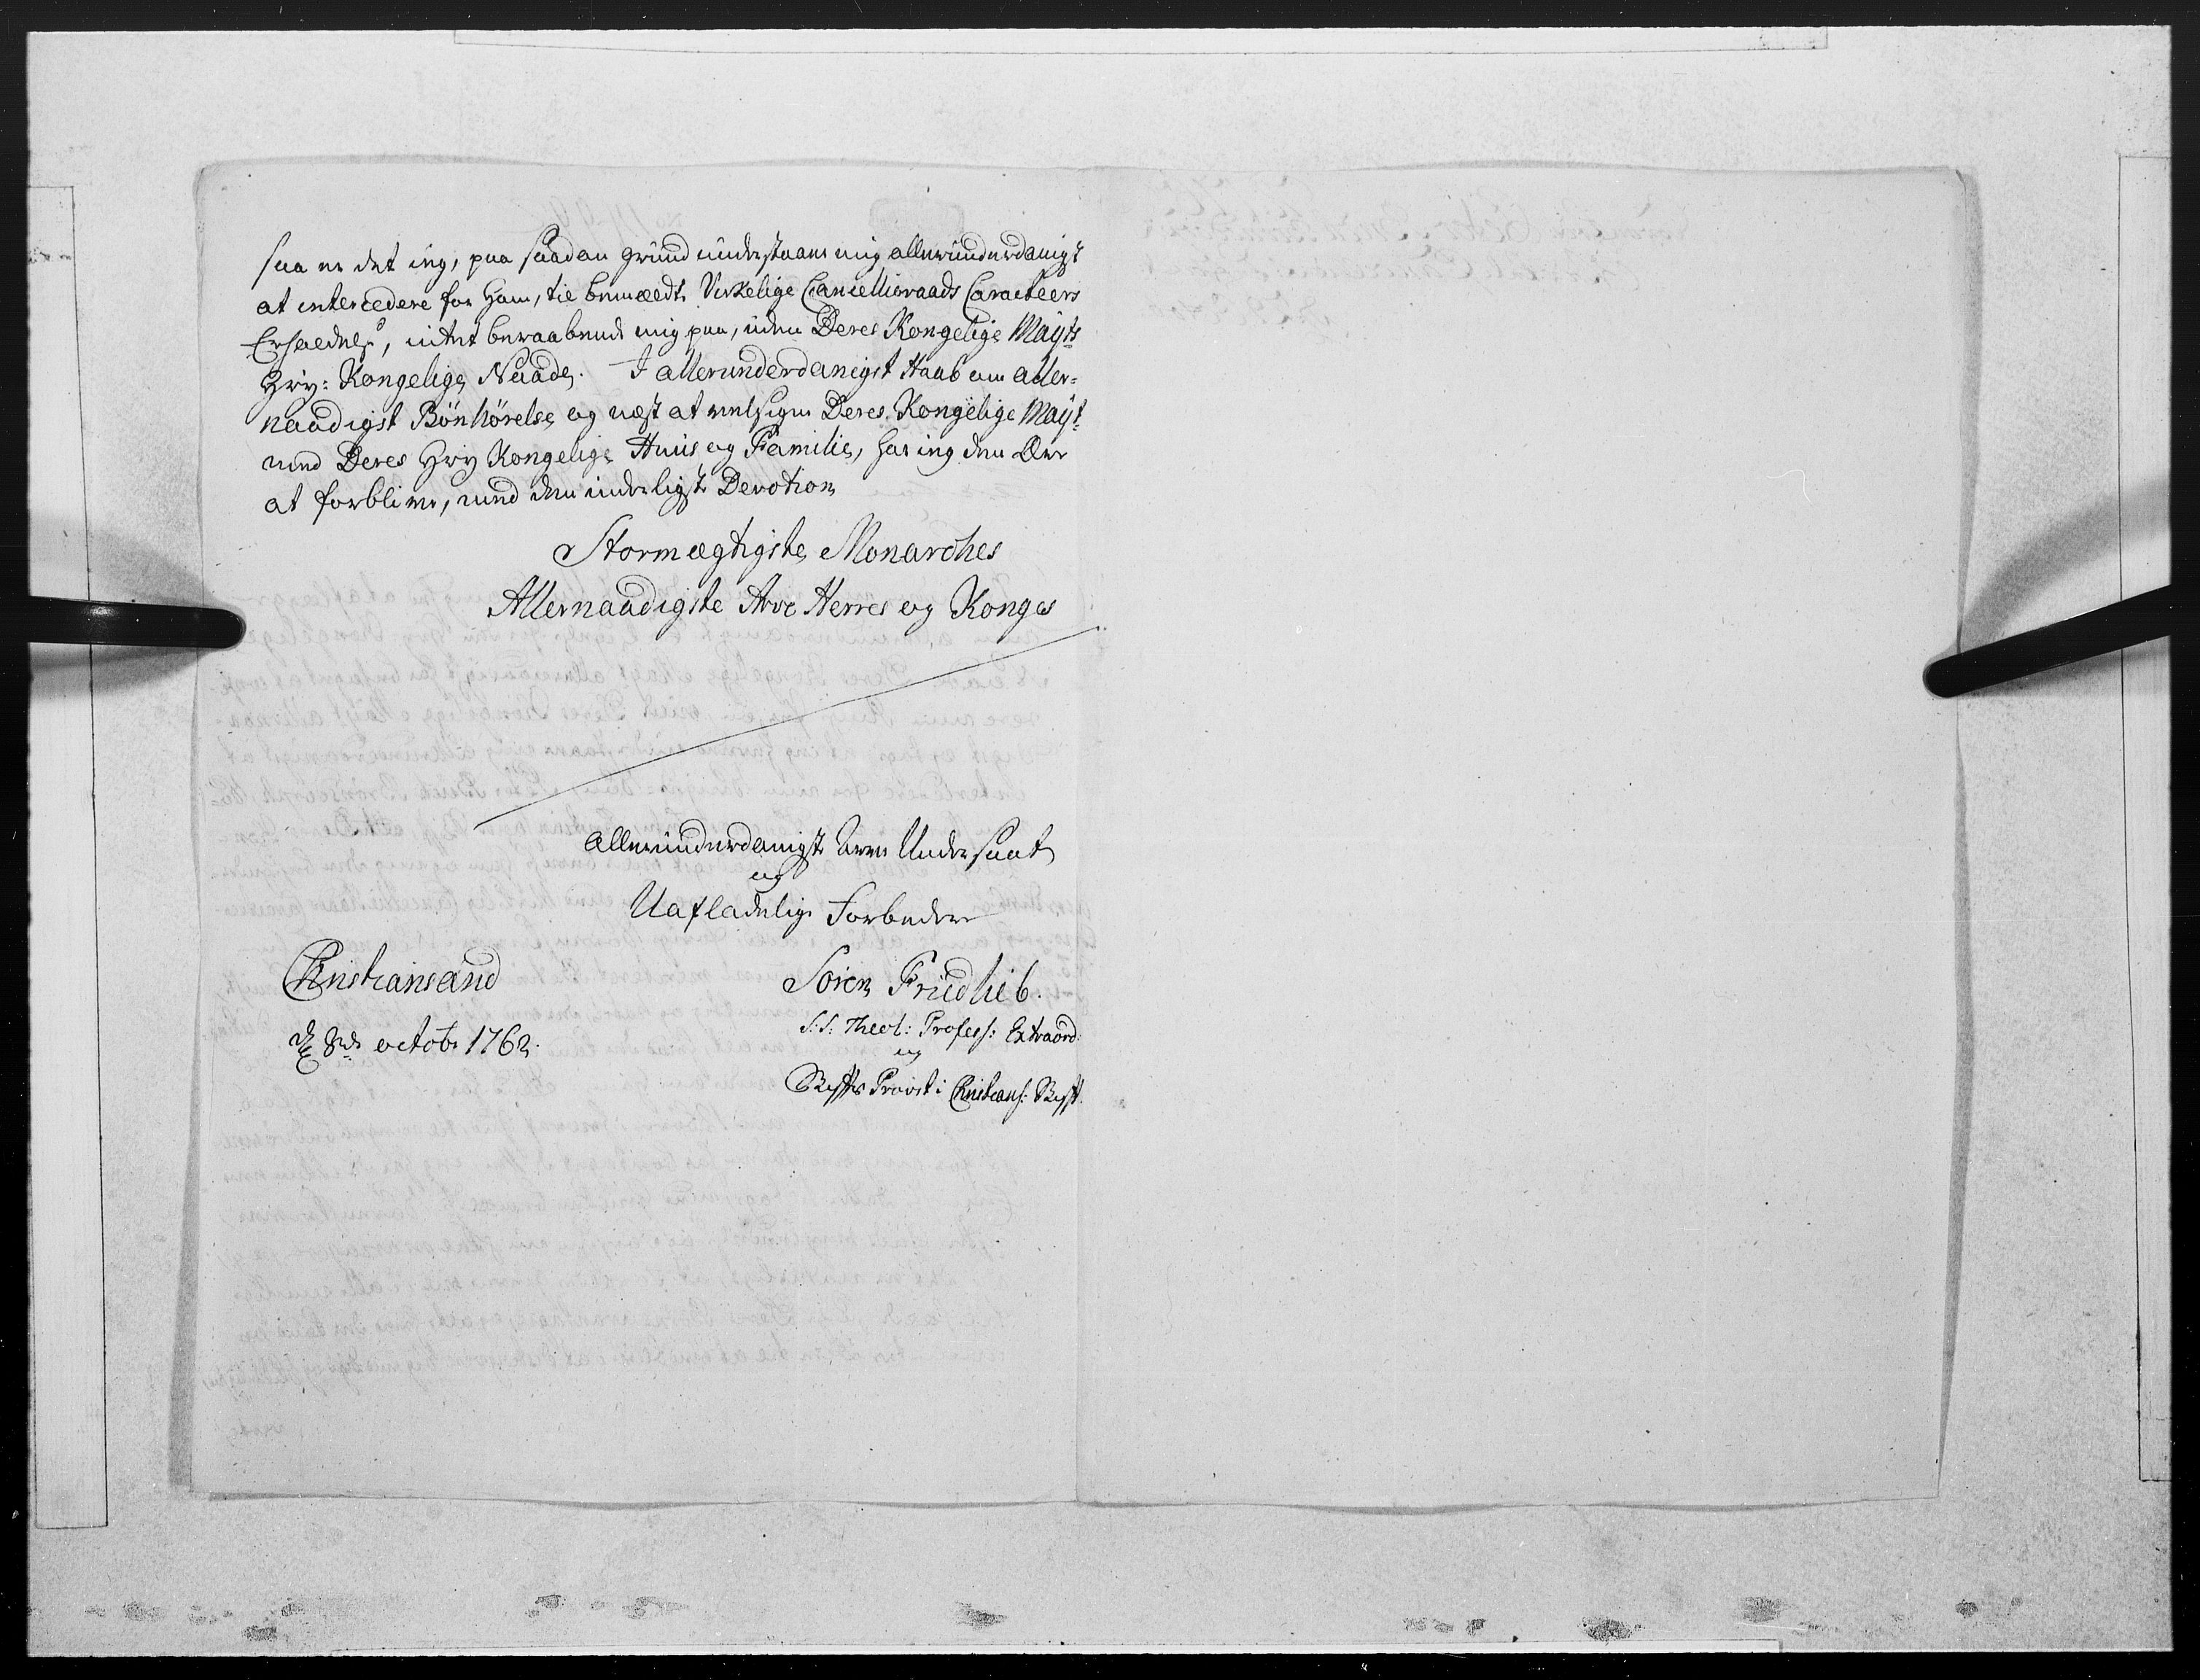 saa er det ieg, paa saadan grund understaaer mig allerunderdanigst
at intercedere for Ham, til bemældte Virkelige Cancellieraads Caracteers
Erholdelse, intet beraabende mig paa, uden Deres Kongelige Mayts
Høy: Kongelige Naade. I allerunderdanigst Haab om aller-
naadigst Bönhörelse, og næst at velsigne Deres Kongelige Mayt:
med Deres Høy Kongelige Huus og Familie, har ieg den Ære
at forblive, med den inderligste Devotion
Stormægtigste Monarches
Allernaadigste Arve Herres og Konges
Allerunderdanigste Arve Undersaat
og
Uafladelige Forbedere
Christiansand
d 8de octobr 1762.
Sören Friedlieb.
S: S: Theol: Profess: Extraord:
og
Stiffts Provst i Christians: Stifft.